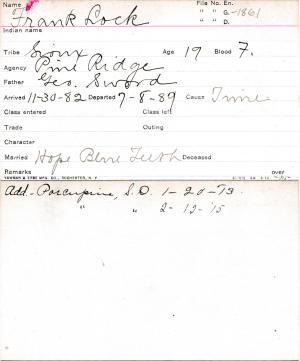 Name File No. En.
Frank Lock " " G-1861
Indian name " " D.
Tribe Sioux Age 19 Blood F.
Agency Pine Ridge
Father Geo. Sword
Arrived 11-30-82 Departed 7-8-89 Cause Time
Class entered Class left
Trade Outing
Character
Married Hope Blue Teeth Deceased
Remarks over
YAWMAN & ERBE MFG. CO., ROCHESTER, N. Y.
Add- Porcupine, S.D. 1-20-'13.
" " 2-13-'15